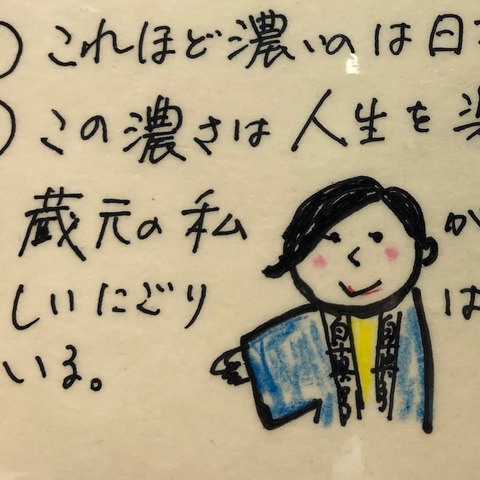 これほど濃いのは日
この濃さは人生を
蔵元の私 か
しいにごり は
いる。